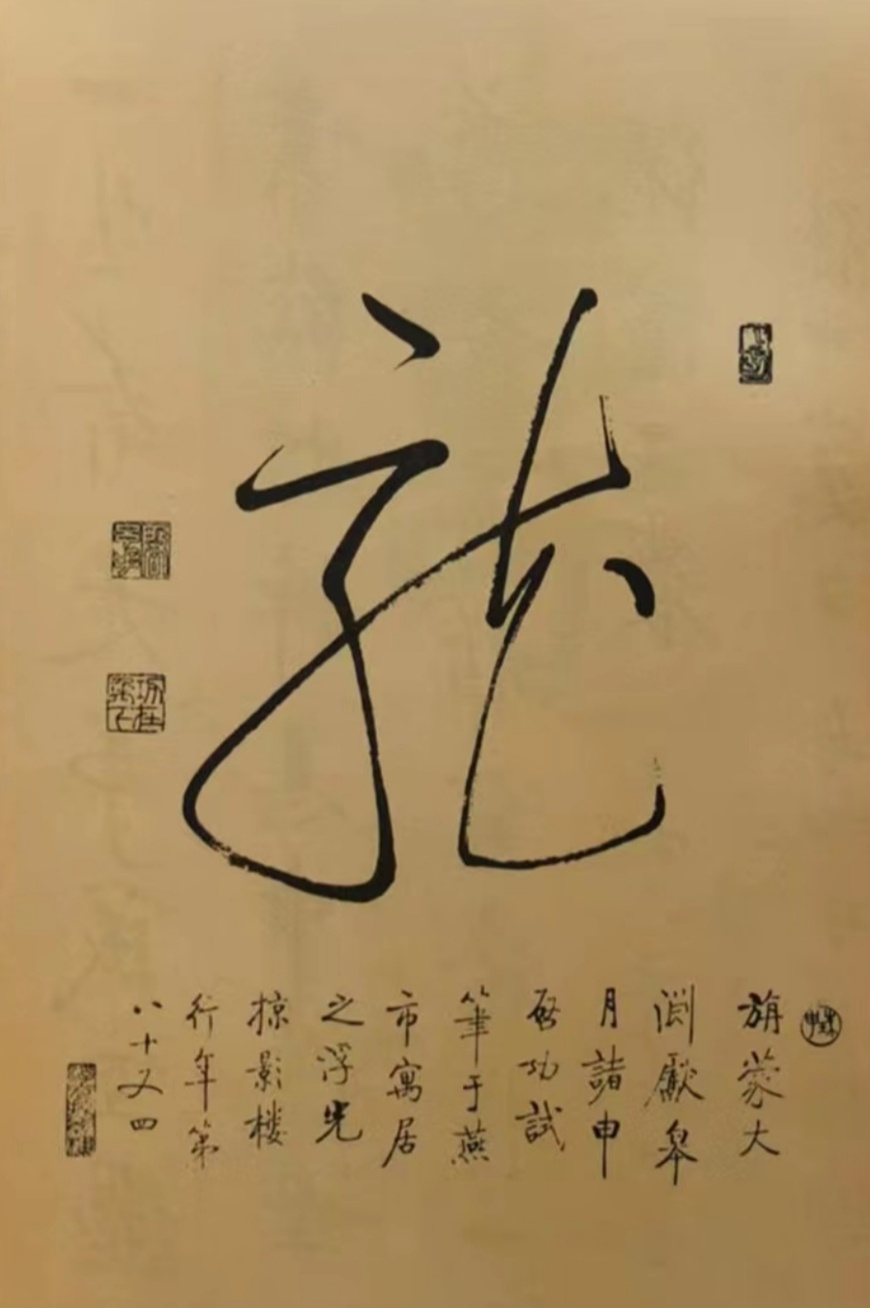 龍
旃蒙大
渊獻皋
月諸申
啓功試
筆于燕
市寓居
之浮光
掠影楼
行年第
八十又四